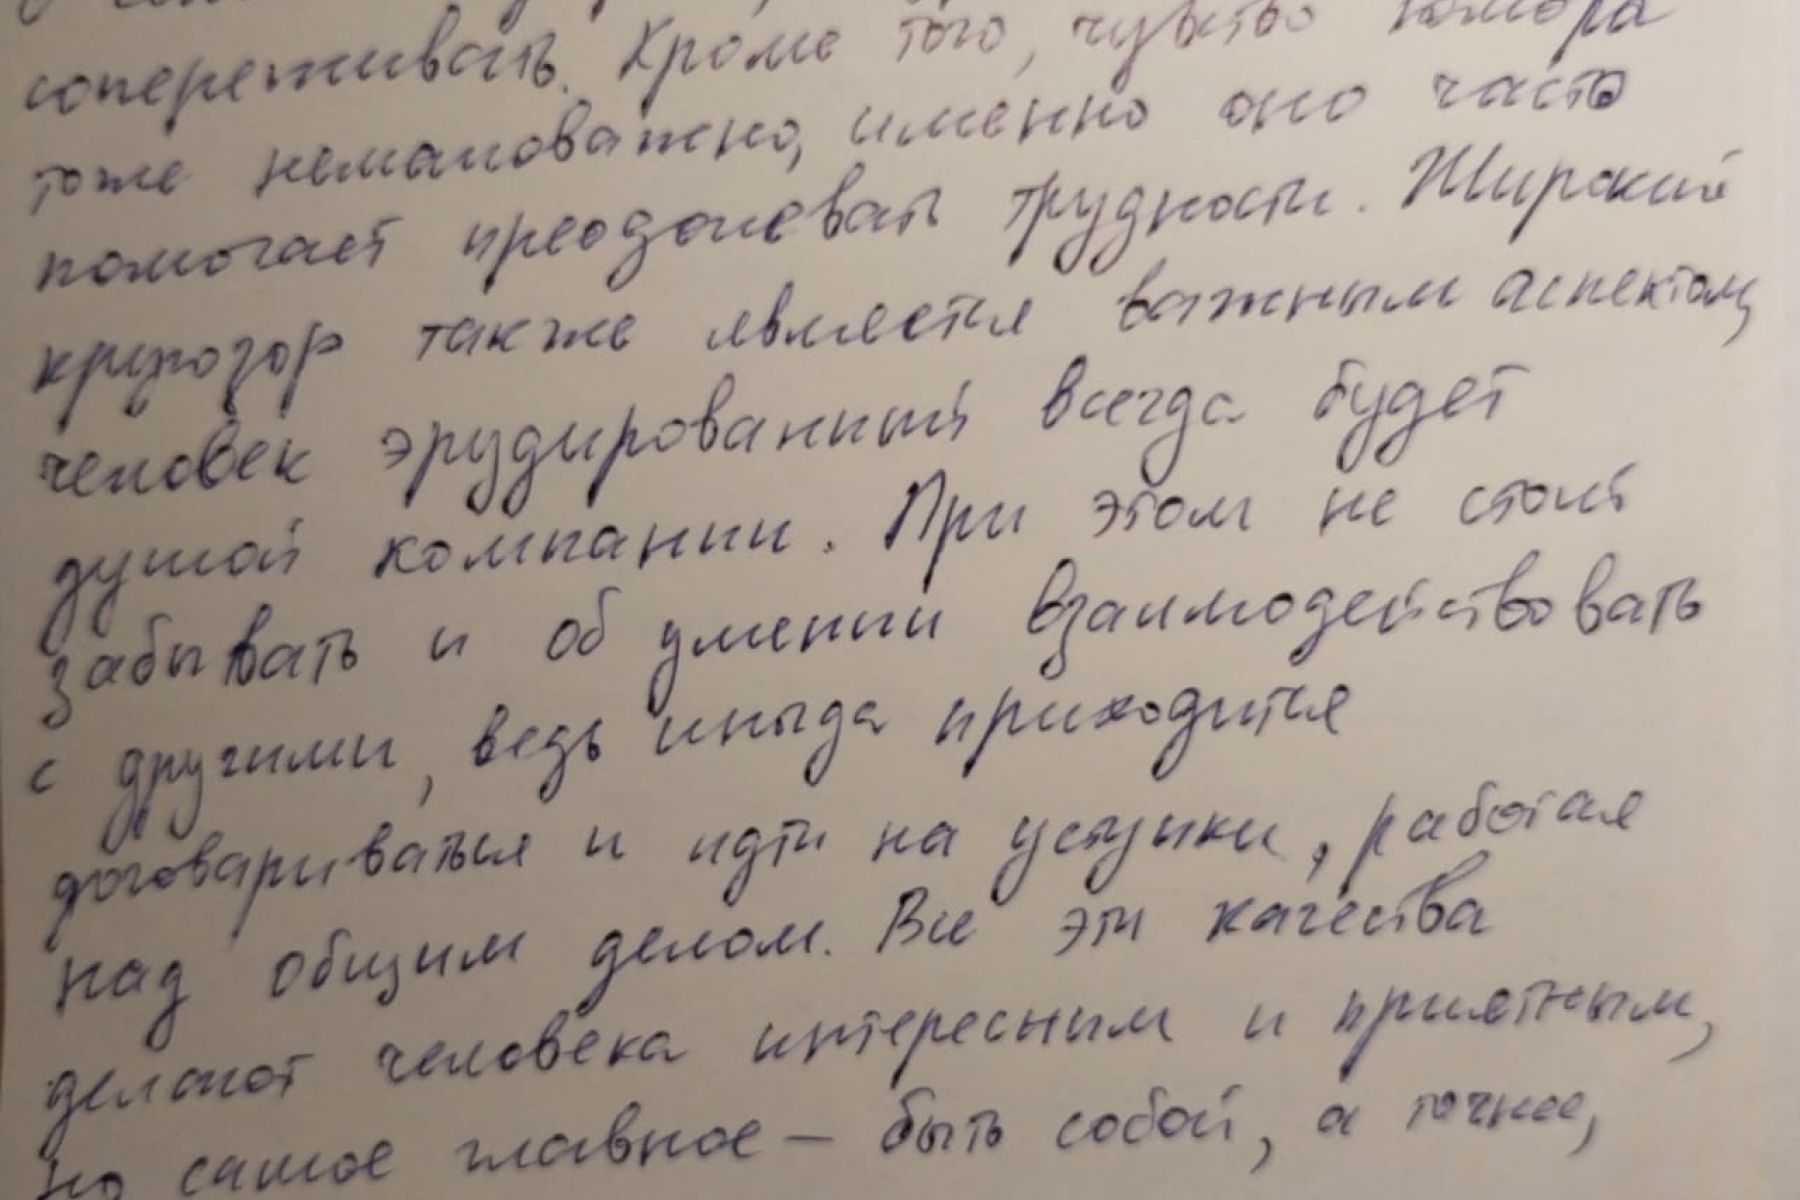 сопереживать. Кроме того, чувство юмора
тоже немаловажно, именно оно часто
помогает преодолевать трудности. Широкий
кругозор также является важным аспектом,
человек эрудированный всегда будет
душой компании. При этом не стоит
забывать и об умении взаимодействовать
с другими, ведь иногда приходится
договариваться и идти на уступки, работая
над общим делом. Все эти качества
делают человека интересным и приятным,
но самое главное – быть собой, а точнее,